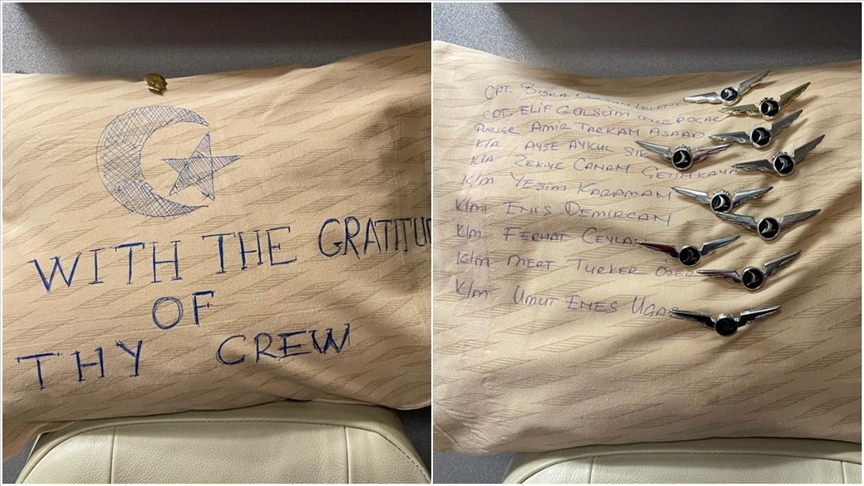 WITH THE GRATITU
OF
THY CREW
CPT. BORA
CPT. ELIF GÜLSÜM
AMIR TARKAM ASAAD
K/A AYSE AYKUL
K/A ZEKIYE CANAM
K/M YESIM KARAMAN
K/M ENIS DEMIRCAN
K/M FERHAT CEYLA
K/M MERT TURKER
K/M UMUT ENES UGA